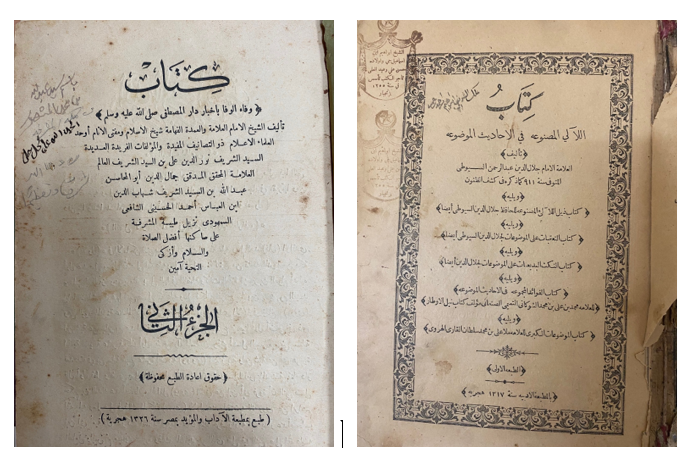 كِتَاب
﴿ وفاء الوفا بأخبار دار المصطفى صلى الله عليه وسلم ﴾
تأليف الشيخ الامام العلامة والعمدة الفهامة شيخ الاسلام ومفتى الانام أوحد
العلماء الاعلام ذو التصانيف المفيدة والمؤلفات الفريدة العديدة
السيد الشريف نور الدين على بن السيد الشريف العالم
العلامة المحقق المدقق جمال الدين أبو المحاسن
عبد الله بن السيد الشريف شهاب الدين
ابن العباس أحمد الحسينى الشافعى
السمهودى نزيل طيبة المشرفة
على ساكنها أفضل الصلاة
والسلام وأزكى
التحية آمين
الجزء الثانى
﴿ حقوق اعادة الطبع محفوظة ﴾
( طبع بمطبعة الآداب والمؤيد بمصر سنة ١٣٢٦ هجرية )
كِتَابُ
اللآلى المصنوعه فى الاحاديث الموضوعه
﴿ تأليف ﴾
العلامة الامام جلال الدين عبد الرحمن السيوطى
المتوفى سنة ٩١١ كما ذكره فى كشف الظنون
﴿ ويليه ﴾
﴿ كتاب ذيل اللآلى المصنوعه للحافظ جلال الدين السيوطى أيضا ﴾
﴿ ويليه ﴾
﴿ كتاب التعقبات على الموضوعات لجلال الدين السيوطى أيضا ﴾
﴿ ويليه ﴾
﴿ كتاب النكت البديعات على الموضوعات لجلال الدين أيضا ﴾
﴿ ويليه ﴾
﴿ كتاب الفوائد المجموعه فى الاحاديث الموضوعه ﴾
﴿ للعلامه محمد بن على بن محمد الشوكانى اليمنى الصنعانى مؤلف كتاب نيل الاوطار ﴾
﴿ ويليه ﴾
﴿ كتاب الموضوعات الكبرى للعلامه ملا على بن محمد سلطان القارى الهروى ﴾
﴿ الطبعة الاولى ﴾
سنة ١٣١٧ هجرية ﴾